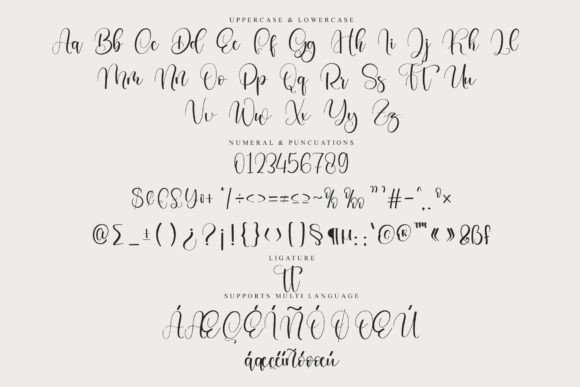 UPPERCASE & LOWERCASE
Aa Bb Cc Dd Ee Ff Gg Hh Ii Jj Kk Ll
Mm Nn Oo Pp Qq Rr Ss Tt Uu
Vv Ww Xx Yy Zz
NUMERAL & PUNCUATIONS
0123456789
#-
@Σ_±()¿?¡!{}‹›[]§¶µ:;'©®™«»&ßf
LIGATURE
tt
SUPPORTS MULTI LANGUAGE